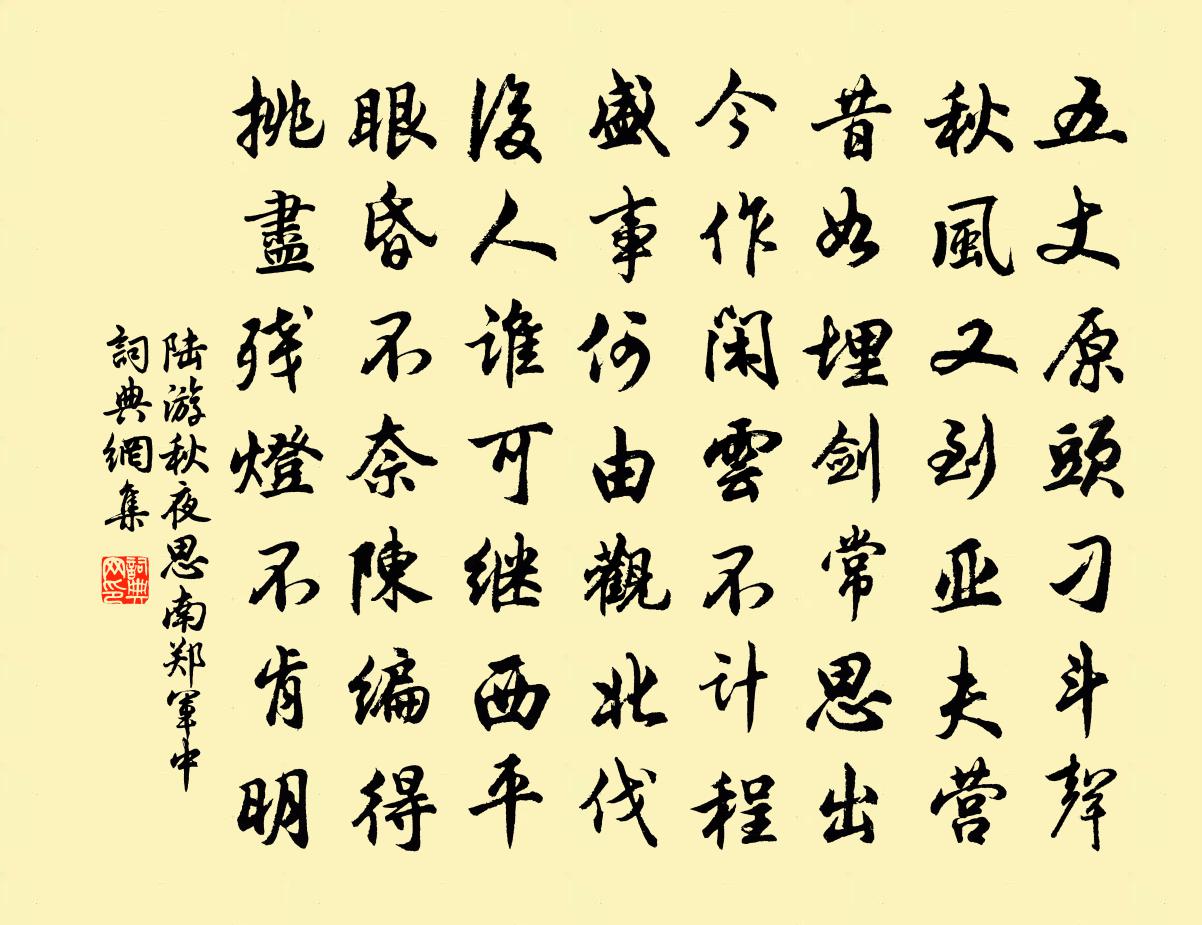 五丈原頭刁斗聲
秋風又到亚夫营
昔如埋剑常思出
今作闲雲不计程
盛事何由觀北伐
後人谁可继西平
眼昏不奈陳编得
挑盡残燈不肯明
陆游秋夜思南郑军中
詞典網集
詞典网印